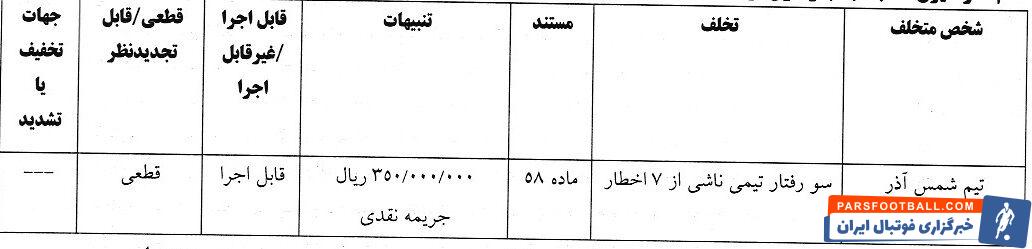 شخص متخلف
تخلف
مستند
تنبیهات
قابل اجرا
/غیرقابل
اجرا
قطعی/قابل
تجدیدنظر
جهات
تخفیف
یا
تشدید
تیم شمس آذر
سو رفتار تیمی ناشی از ۷ اخطار
ماده ۵۸
۳۵۰/۰۰۰/۰۰۰ ریال
جریمه نقدی
قابل اجرا
قطعی
---
PARSFOOTBALL.COM
خبرگزاری فوتبال ایران